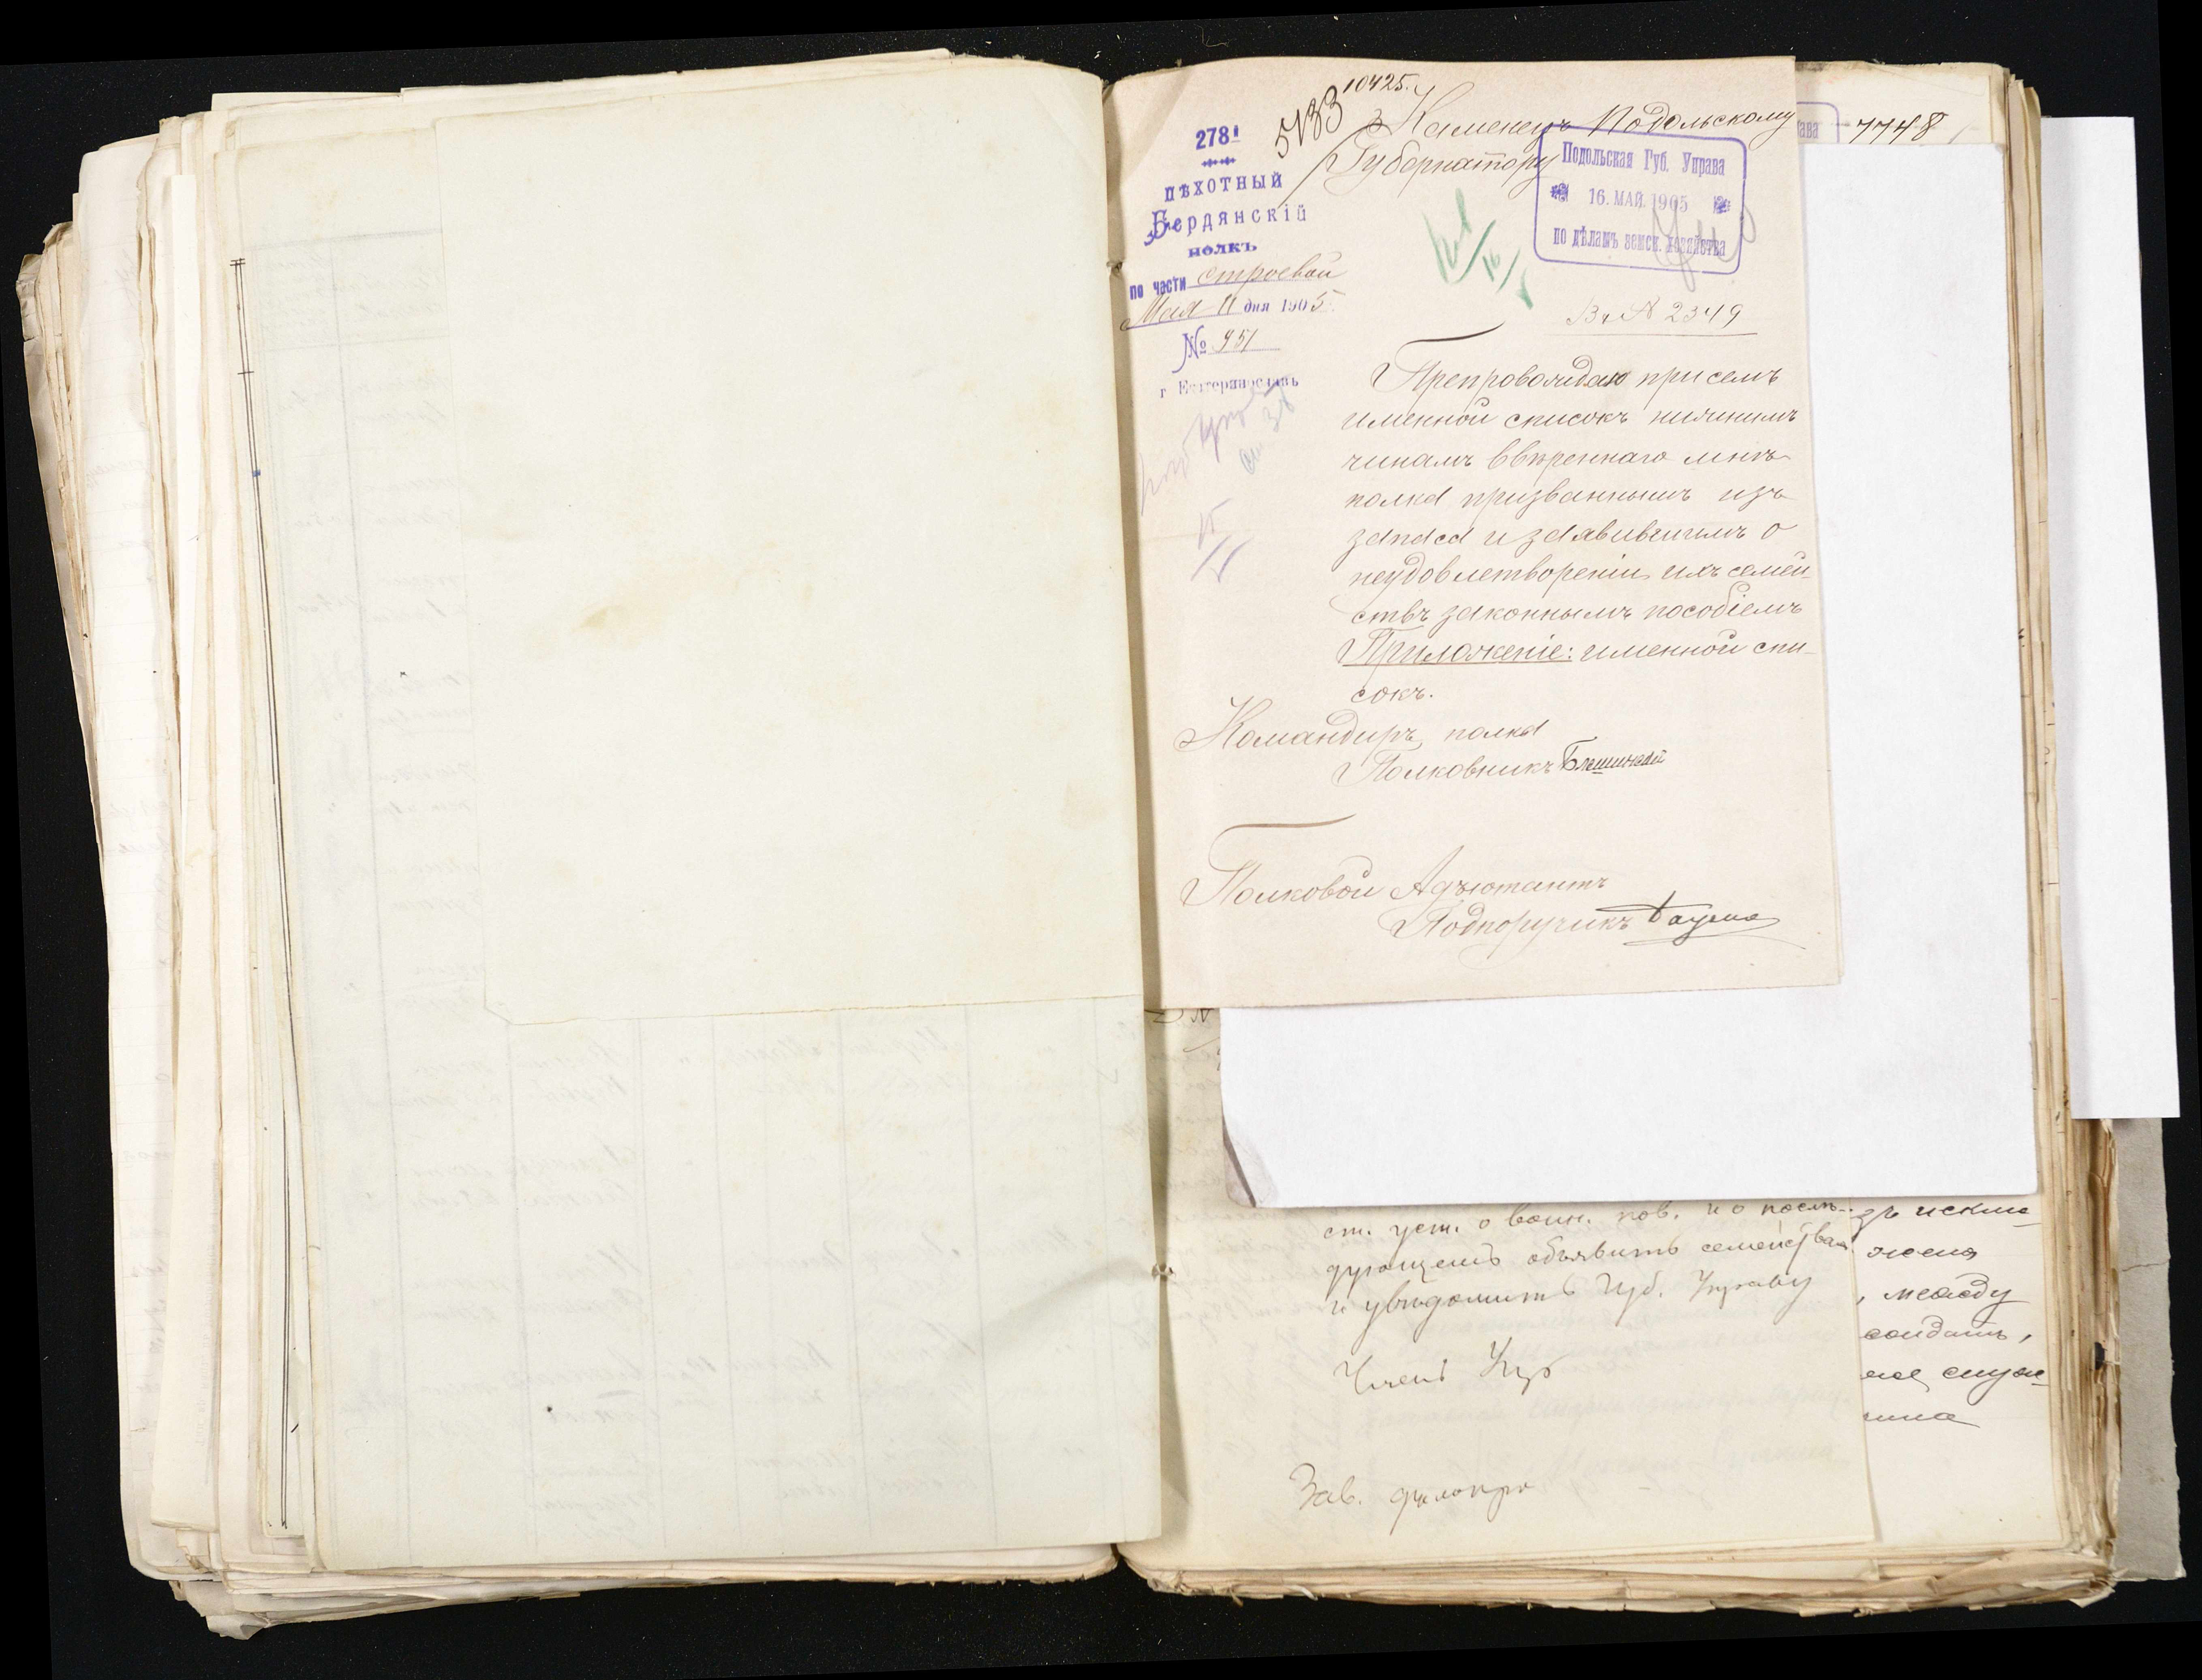 10425.
5133
278й
ПѢХОТНЫЙ
Бердянскій
полкъ
по части строевой
Мая 11 дня 1905
№ 951
г Екатеринославъ
Каменецъ Подольскому
Губернатору
Подольская Губ. Управа
16. МАЙ. 1905
по дѣламъ земск. хозяйства
7748
Вх № 2349
Препровождаю при семъ
именной списокъ нижнимъ
чинамъ ввѣреннаго мнѣ
полка призваннымъ изъ
запаса и заявившимъ о
неудовлетвореніи ихъ семей-
ствъ законнымъ пособіемъ
Приложеніе: именной спи-
сокъ.
Командиръ полка
Полковникъ
Полковой Адъютантъ
Подпоручикъ
ст. уст. о воин. пов. и о послѣ-
дующемъ объявить семействам
и увѣдомить Губ. Управу
Членъ Упр
Зав. дѣлопр
жена
, между
солдатъ,